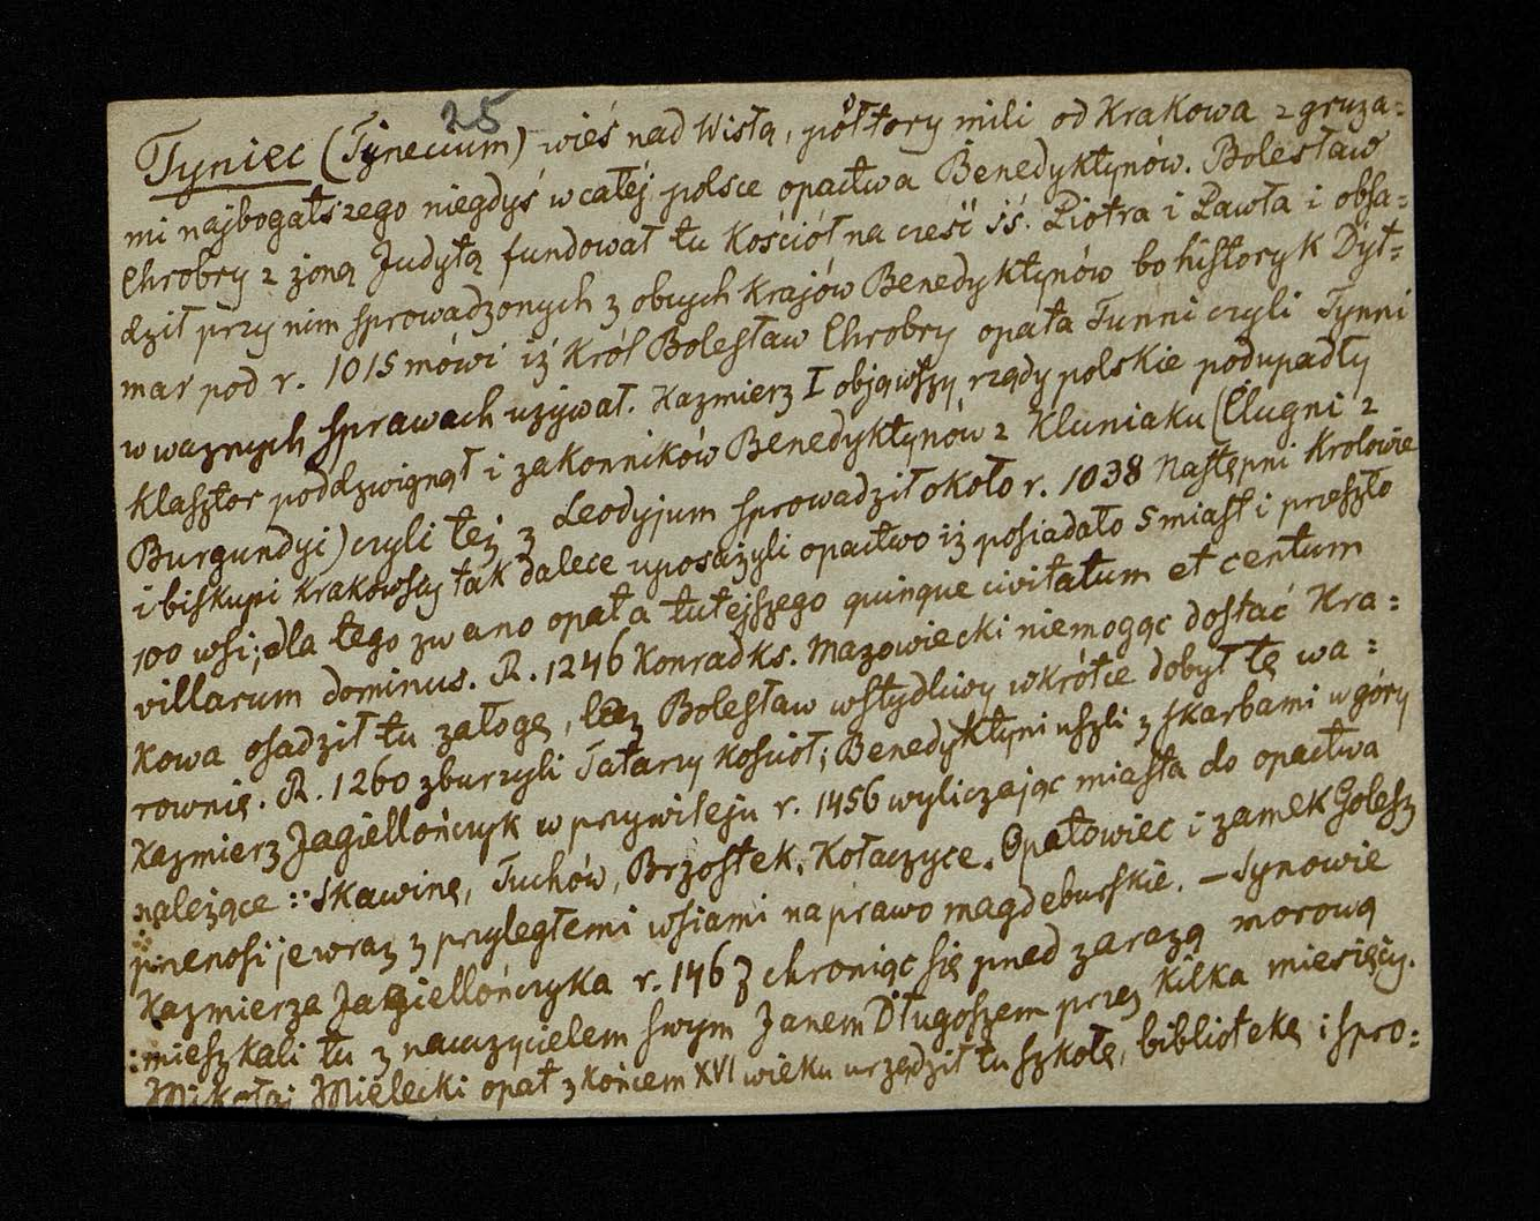 25
Tyniec (Tynecium) wieś nad Wisłą, półtory mili od Krakowa z gruza=
mi najbogatszego niegdyś w całéj polsce opactwa Benedyktynów. Bolesław
Chrobry z żoną Judytą fundował tu Kościół na cześć śś. Piotra i Pawła i obsa=
dził przy nim sprowadzonych z obcych krajów Benedyktynów bo historyk Dyt=
mar pod r. 1015 mówi iż Król Bolesław Chrobry opata Tunni czyli Tynni
w waznych sprawach uzywał. Kazmierz I objąwszy rządy polskie podupadły
Klasztor poddzwignął i zakonników Benedyktynów z Kluniaku (Clugni z
Burgundyi) czyli też z Leodyjum sprowadził około r. 1038 Następni Krolowie
i biskupi Krakowscy tak dalece uposażyli opactwo iż posiadało 5 miast i przeszło
100 wsi; dla tego zwano opata tutejszego quinque civitatum et centum
villarum dominus. R. 1246 Konrad ks. Mazowiecki niemogąc dostać Kra=
kowa osadził tu załogę, lecz Bolesław wstydliwy wkrótce dobył tę wa=
rownię. R. 1260 zburzyli Tatarzy Kosciół; Benedyktyni uszli z skarbami w góry
Kazmierz Jagiellończyk w przywileju r. 1456 wyliczając miasta do opactwa
należące: Skawinę, Tuchów, Brzostek, Kołaczyce. Opatowiec i zamek Golesz
przenosi je wraz z przyległemi wsiami na prawo magdeburskie. — Synowie
Kazmierza Jagiellończyka r. 1467 chroniąc się przed zarazą morową
mieszkali tu z nauczycielem swym Janem Długoszem przez Kilka miesięcy.
Mikołaj Mielecki opat z końcem XVI wieku urządził tu szkołę, bibliotekę i spro=